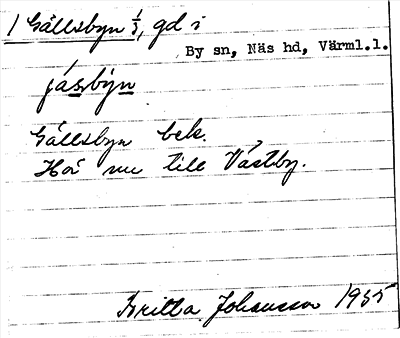 1 Gällsbyn 1/3, gd i
By sn, Näs hd, Värml.l.
jäsby̆n
Gällsbyn bek.
Hör nu till Västby.
Britta Johansson 1935